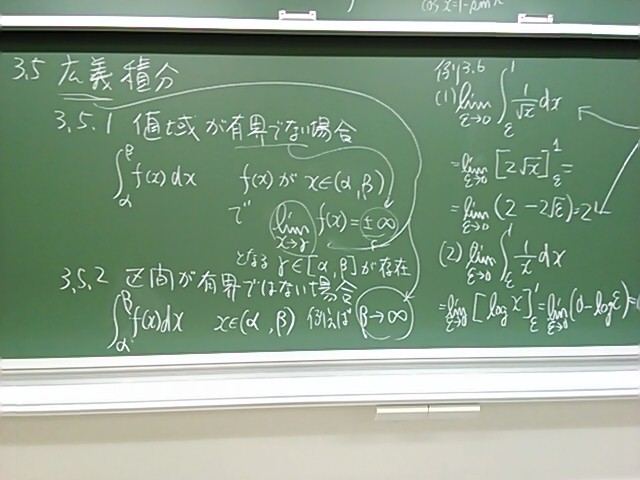 (3) x=1-sin x
3.5 広義積分
3.5.1 値域が有界でない場合
∫_α^β f(x)dx f(x)が x∈(α,β)
で lim_{x→γ} f(x)=±∞
となる γ∈[α,β]が存在
3.5.2 区間が有界ではない場合
∫_α^β f(x)dx x∈(α,β) 例えば β→∞
例3.6
(1) lim_{ε→0} ∫_ε^1 1/√x dx
=lim_{ε→0} [2√x]_ε^1=
=lim_{ε→0} (2-2√ε)=2
(2) lim_{ε→0} ∫_ε^1 1/x dx
=lim_{ε→0} [log x]_ε^1=lim_{ε→0}(0-logε)=